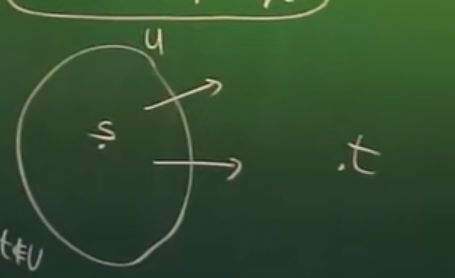 U
s
t
t∉U